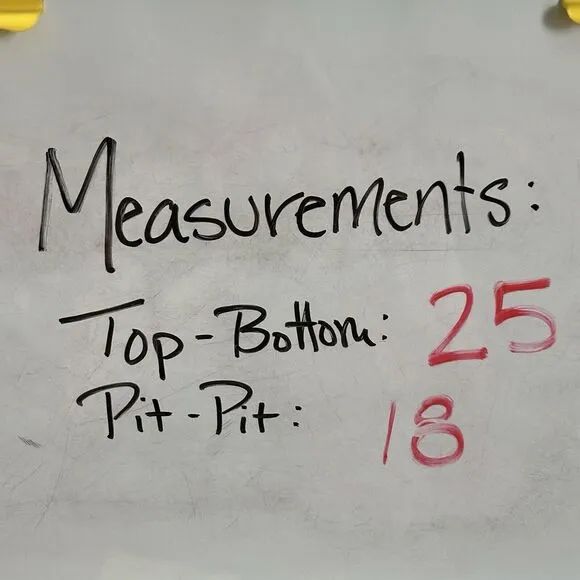 Measurements:
Top-Bottom: 25
Pit-Pit: 18